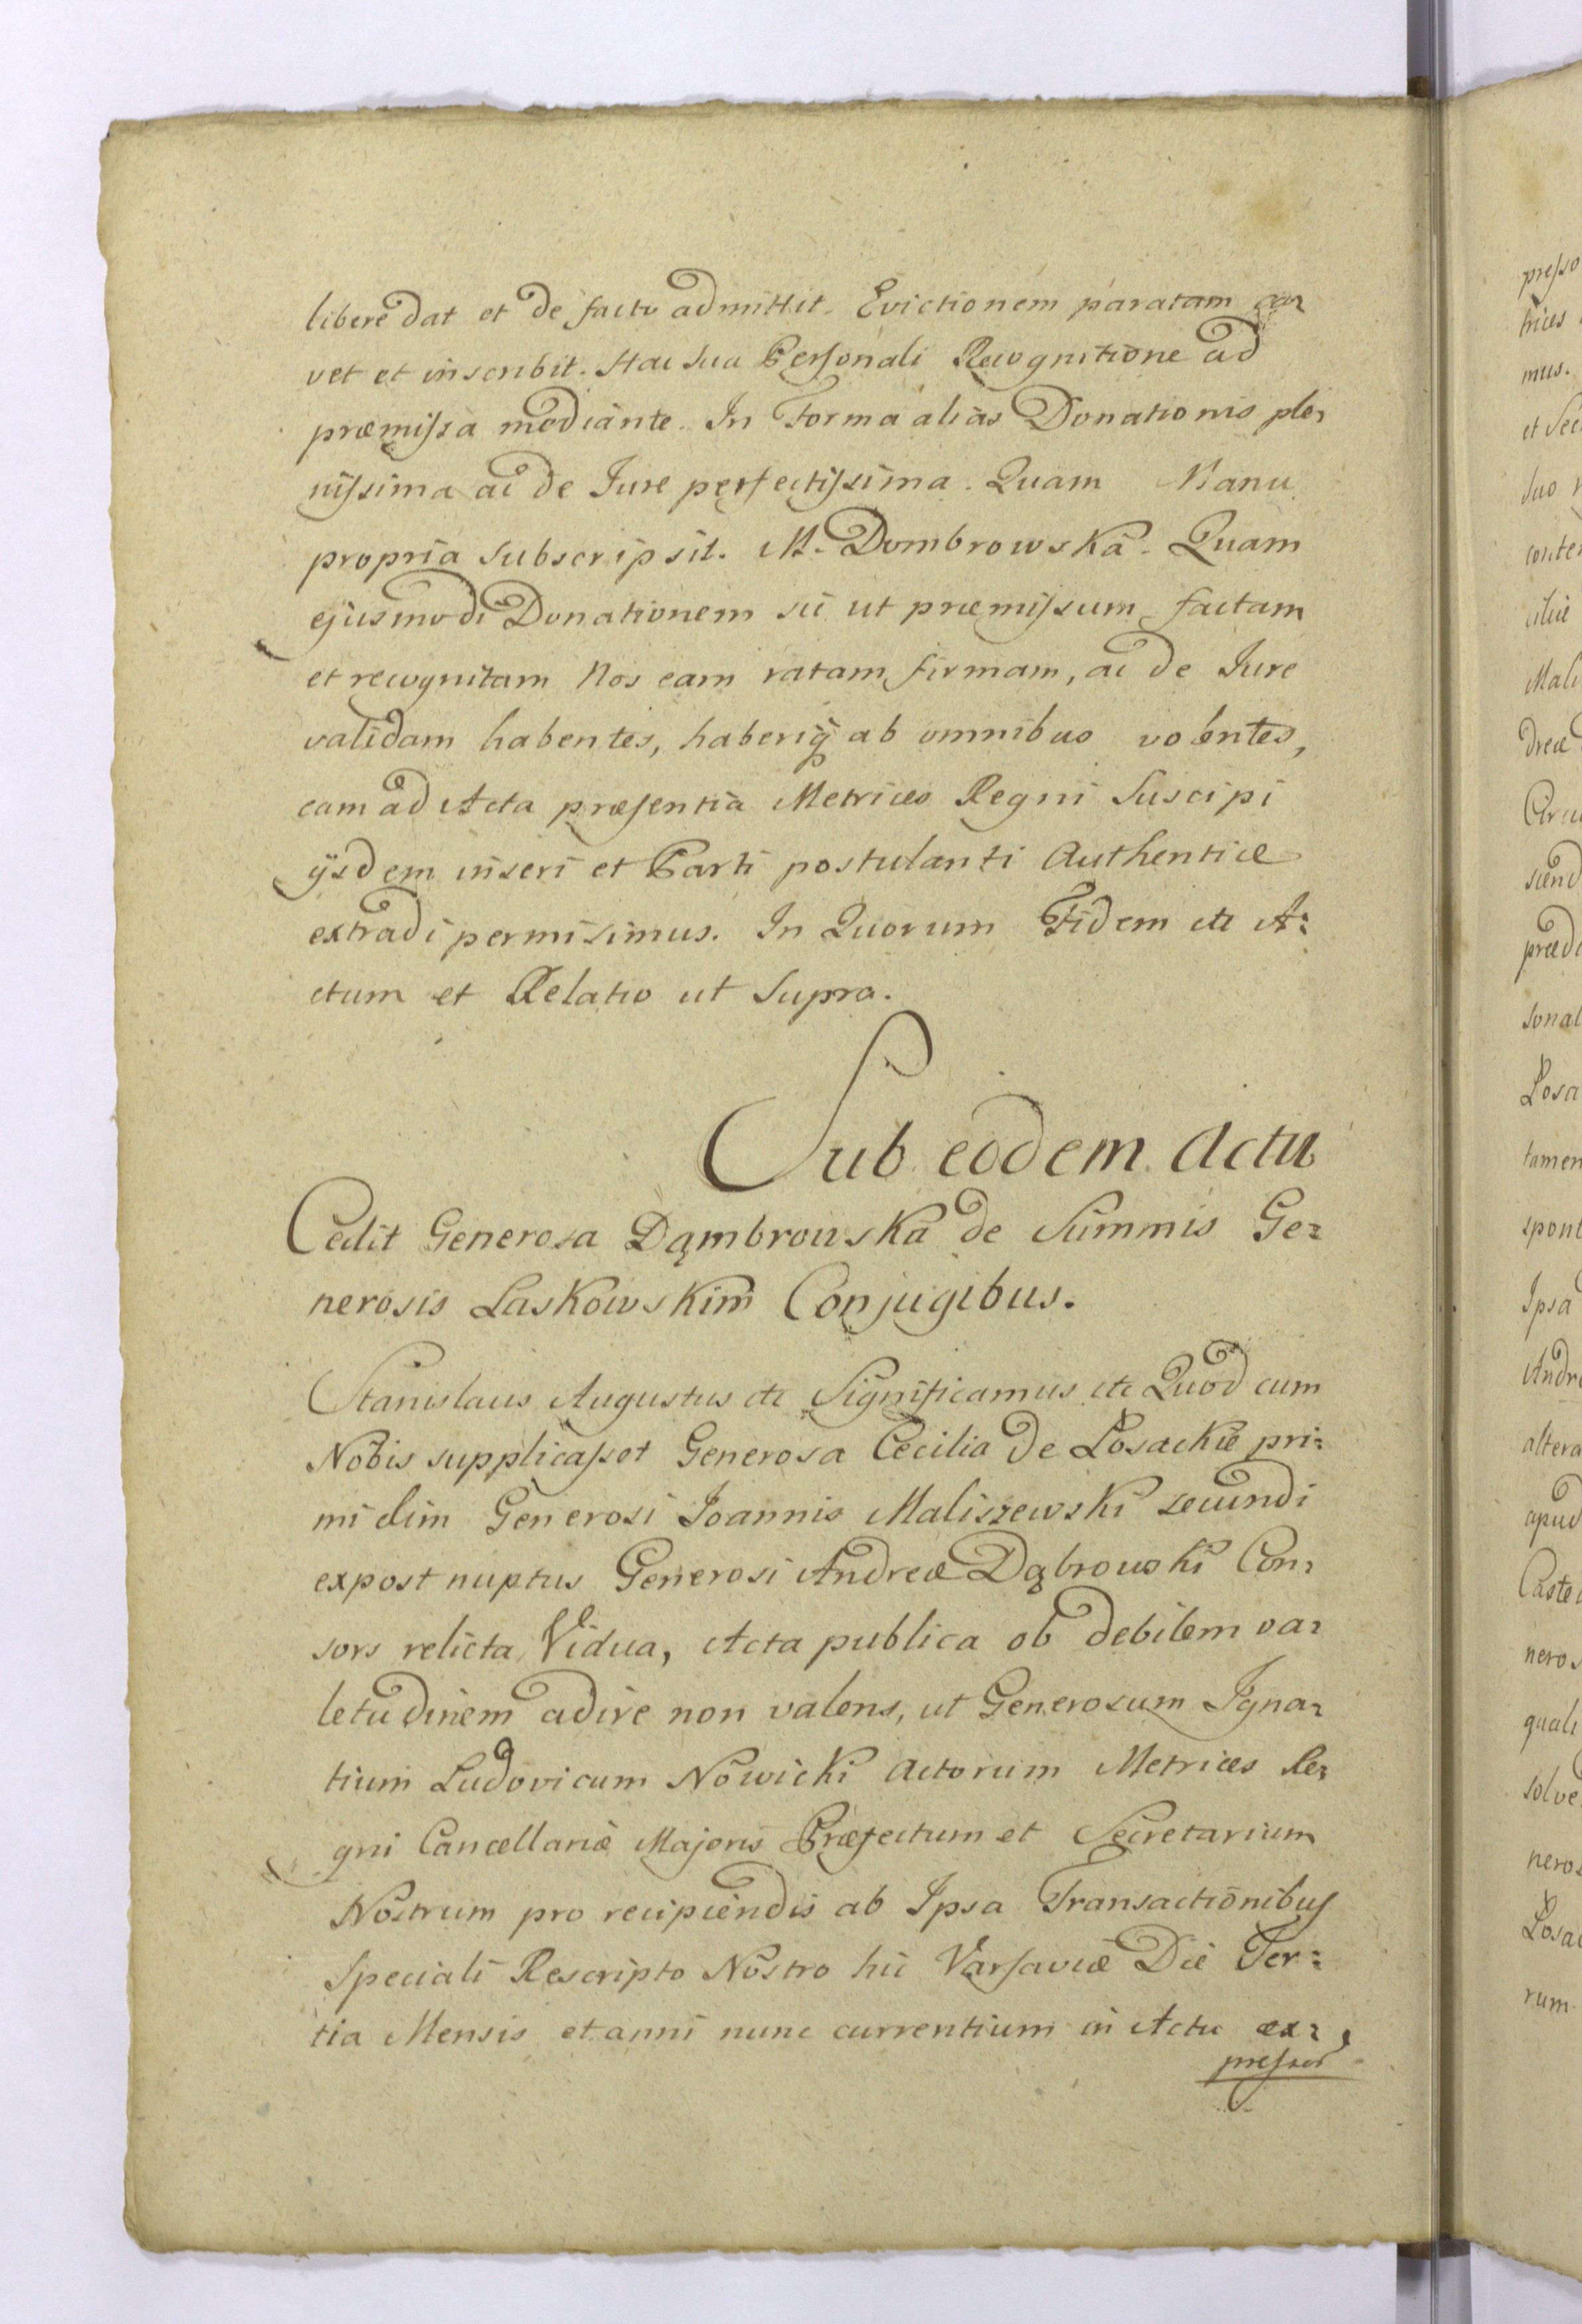 libere dat et de facto admittit. Evictionem paratam ca=
vet et inscribit. Hac sua Personali Recognitione ad
præmissa mediante. In Forma alias Donationis ple=
nissima ac de Jure perfectissima. Quam Manu
propria subscripsit. M. Dombrowska. Quam
ejusmodi Donationem sic ut præmissum factam
et recognitam Nos eam ratam firmam, ac de Jure
validam habentes, haberiq ab omnibus volentes,
eam ad Acta præsentia Metrices Regni Suscipi
ijsdem inseri et Parti postulanti Authentice
extradi permisimus. In Quorum Fidem etc A=
ctum et Relatio ut Supra.
Sub eodem Actu
Cedit Generosa Dąmbrowska de Summis Ge=
nerosis Laskowskim Conjugibus.
Stanislaus Augustus etc Significamus etc Quod cum
Nobis supplicasset Generosa Cecilia de Łosackie pri=
mi olim Generosi Joannis Maliszewski secundi
expost nuptus Generosi Andreæ Dąbrowski Con=
sors relicta Vidua, Acta publica ob debilem va=
letudinem adire non valens, ut Generosum Igna=
tium Ludovicum Nowicki Actorum Metrices Re=
gni Cancellariæ Majoris Præfectum et Secretarium
Nostrum pro recipiendis ab Ipsa Transactionibus
Speciali Rescripto Nostro hic Varsaviæ Die Ter=
tia Mensis et anni nunc currentium in Actu ex=
presso
presso
trices
mus.
et Sec
suo
conten
ciliæ
Mali
dreæ
siend
præd
sonal
Łosa
tamen
spont
Ipsa
Andr
altera
apud
Caste
neros
quali
solve
neros
Łosac
rum